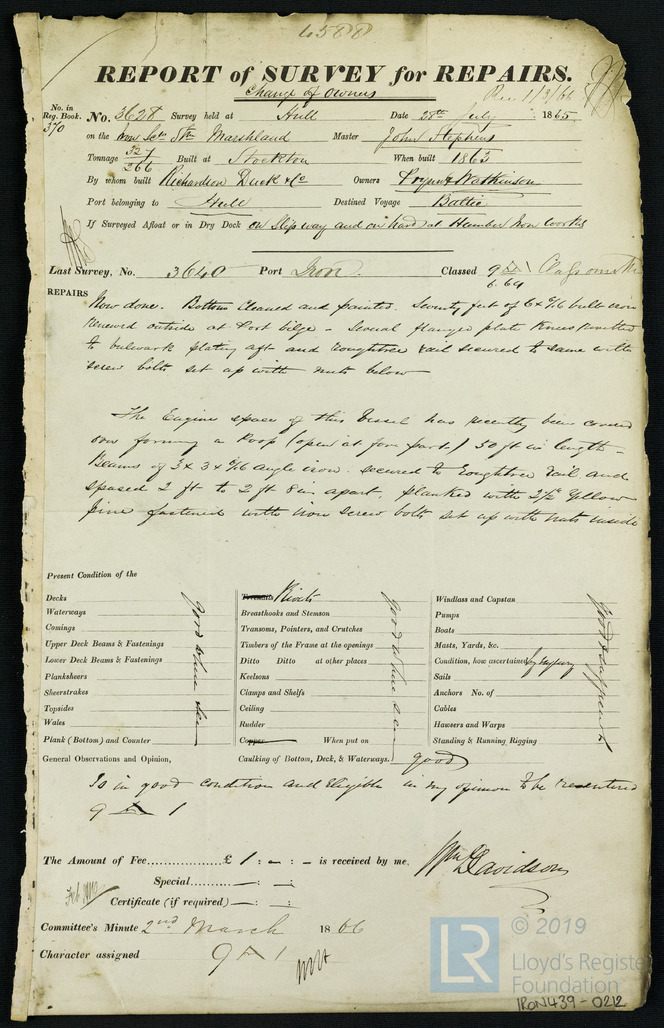 6588
REPORT of SURVEY for REPAIRS.
Change of Owners
Rec 1/3/66
No. in Reg. Book. 370
No. 3628 Survey held at Hull Date 28th July 1865
on the Marshland Master John Stephens
Tonnage 327 266 Built at Stockton When built 1863
By whom built Richardson Duck & Co Owners Watkinson
Port belonging to Hull Destined Voyage Baltic
If Surveyed Afloat or in Dry Dock on Slip way and on hard at Humber Iron Works
Last Survey, No. 3640 Port Iron Classed 9 A 1
6.64
REPAIRS
Now done. Bottom Cleaned and painted. Seventy feet of 6 x 9/16 bulb iron
renewed outside at Port bilge - Several flanged plate knees rivetted
to bulwark plating aft and roughtree rail secured to same with
screw bolts set up with nuts below
The Engine space of this Vessel has recently been covered
over forming a Poop (open at fore part) 50 ft in length -
Beams of 3 x 3 x 6/16 angle iron. secured to roughtree rail and
spaced 2 ft to 2 ft 8 in apart, planked with 2½ Yellow
pine fastened with iron screw bolts set up with nuts inside
Present Condition of the
Decks
Waterways
Comings
Upper Deck Beams & Fastenings
Lower Deck Beams & Fastenings
Planksheers
Sheerstrakes
Topsides
Wales
Plank (Bottom) and Counter
good where seen
Treenails Rivets
Breasthooks and Stemson
Transoms, Pointers, and Crutches
Timbers of the Frame at the openings
Ditto Ditto at other places
Keelsons
Clamps and Shelfs
Ceiling
Rudder
Copper When put on
Caulking of Bottom, Deck, & Waterways. good
good where seen
Windlass and Capstan
Pumps
Boats
Masts, Yards, &c.
Condition, how ascertained
Sails
Anchors No. of
Cables
Hawsers and Warps
Standing & Running Rigging
General Observations and Opinion,
Is in good condition and Eligible in my opinion to be re-entered
9 A 1
The Amount of Fee............... £ 1 : — : — is received by me,
Wm Davidson
Special............ — : — :
Certificate (if required) — : — :
Committee's Minute 2nd March 1866
Character assigned 9 A 1
LR
© 2019
Lloyd's Register
Foundation
IRON439-0212